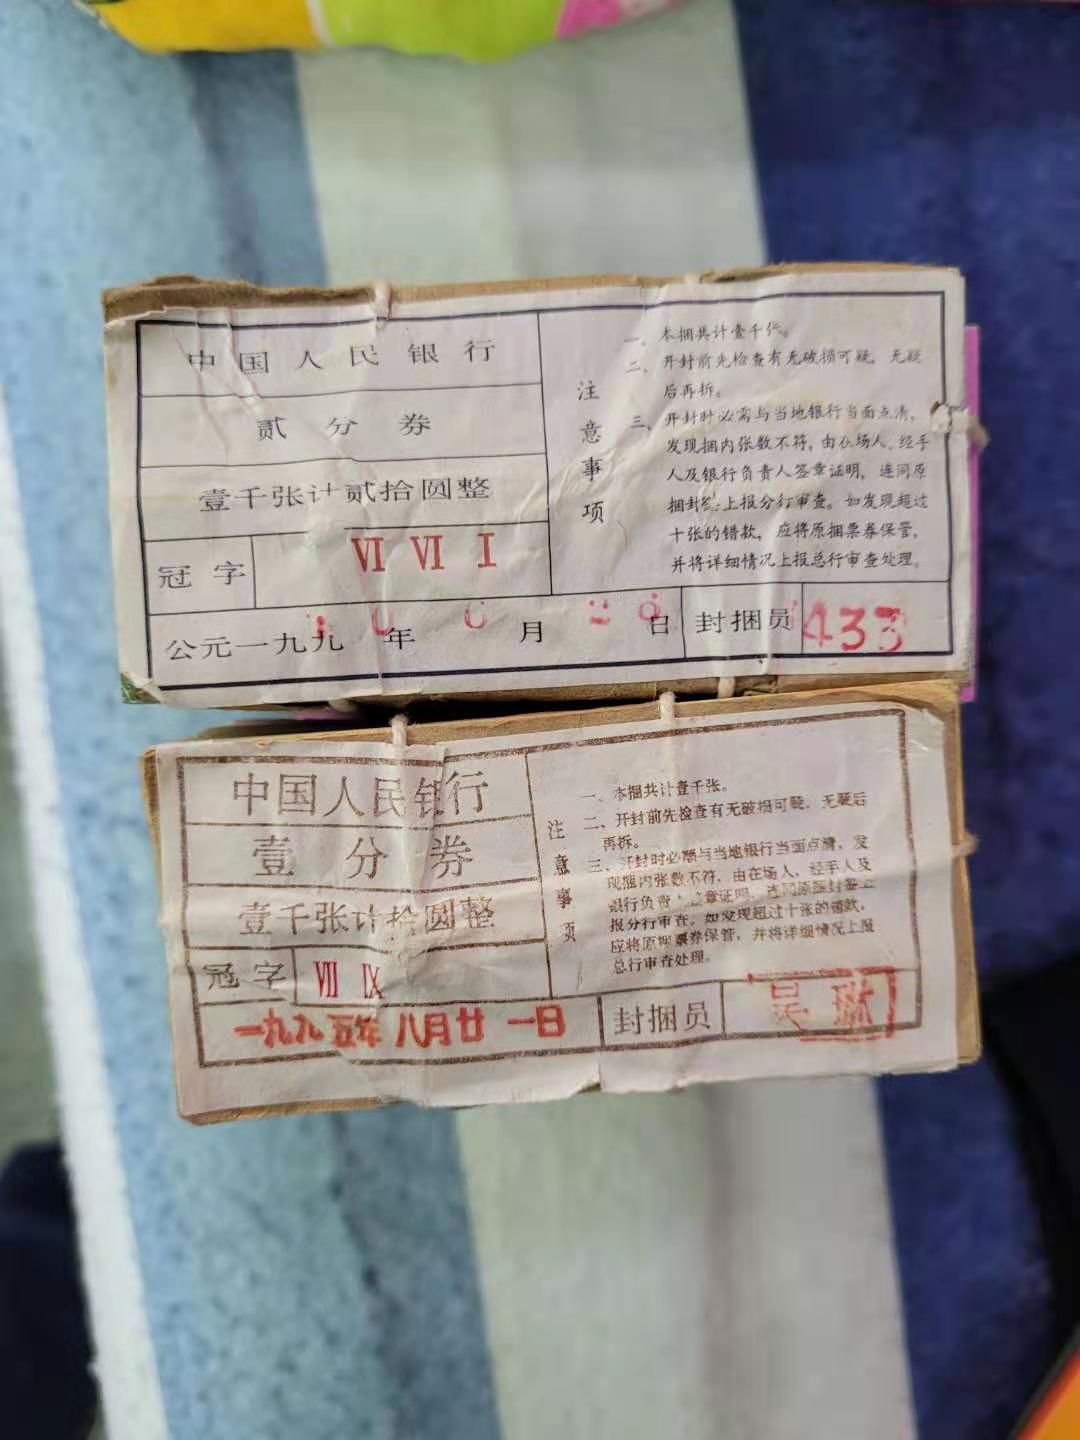 中国人民银行
贰分券
壹千张计贰拾圆整
冠字
VI VI I
公元一九九 年 月 日
封捆员
433
注意事项
一、本捆共计壹千张。
二、开封前先检查有无破损可疑，无疑
后再拆。
三、开封时必需与当地银行当面点清，
发现捆内张数不符，由在场人、经手
人及银行负责人签章证明，连同原
捆封签上报分行审查。如发现超过
十张的错款，应将原捆票券保管，
并将详细情况上报总行审查处理。
中国人民银行
壹分券
壹千张计拾圆整
冠字
VII IX
一九九五年八月廿一日
封捆员
吴琳
注意事项
一、本捆共计壹千张。
二、开封前先检查有无破损可疑，无疑后
再拆。
三、开封时必须与当地银行当面点清，发
现捆内张数不符，由在场人、经手人及
银行负责人签章证明，连同原捆封签上
报分行审查，如发现超过十张的错款，
应将原捆票券保管，并将详细情况上报
总行审查处理。